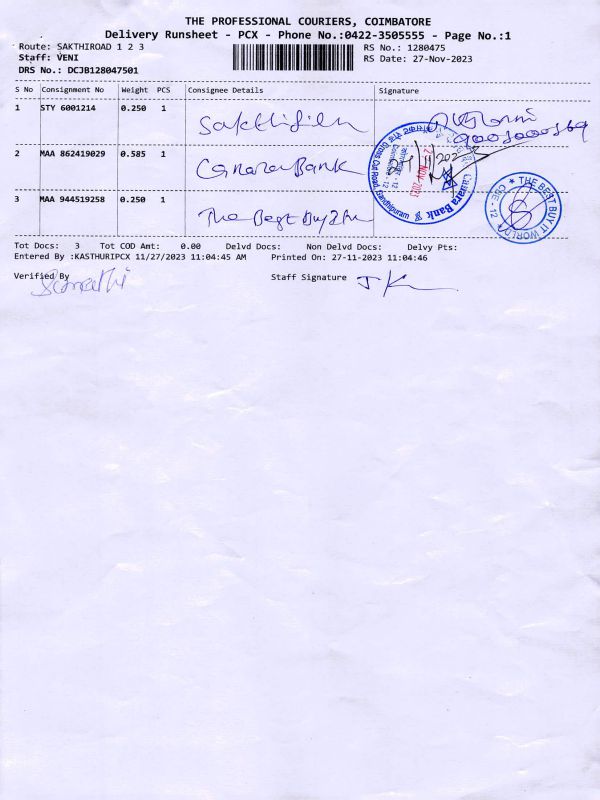 THE PROFESSIONAL COURIERS, COIMBATORE
Delivery Runsheet - PCX - Phone No.:0422-3505555 - Page No.:1
Route: SAKTHIROAD 1 2 3
RS No.: 1280475
Staff: VENI
RS Date: 27-Nov-2023
DRS No.: DCJB128047501
S No Consignment No Weight PCS Consignee Details Signature
1 STY 6001214 0.250 1
2 MAA 862419029 0.585 1 Canara Bank
3 MAA 944519258 0.250 1 The Best Buy
Canara Bank
Cross Cut Road, Gandhipuram
THE BEST BUY IT WORLD
CBE - 12
Tot Docs: 3 Tot COD Amt: 0.00 Delvd Docs: Non Delvd Docs: Delvy Pts:
Entered By :KASTHURIPCX 11/27/2023 11:04:45 AM Printed On: 27-11-2023 11:04:46
Verified By
Staff Signature